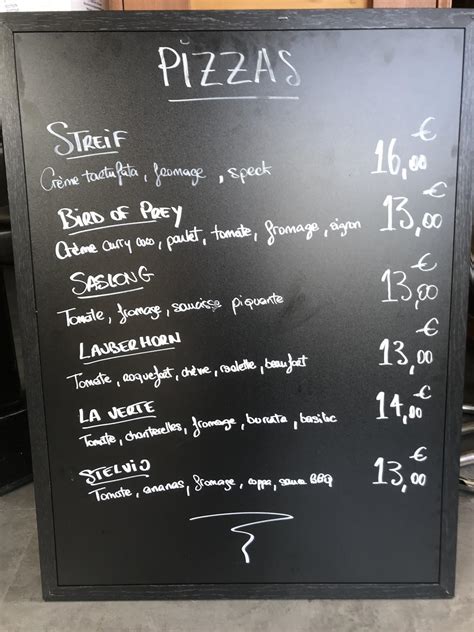 PIZZAS
STREIF
Crème tartufata, fromage, speck 16,00 €
BIRD OF PREY
Crème curry coco, poulet, tomate, fromage, oignon 13,00 €
SASLONG
Tomate, fromage, saucisse piquante 13,00 €
LAUBERHORN
Tomate, roquefort, chèvre, raclette, beaufort 13,00 €
LA VERTE
Tomate, chanterelles, fromage, burrata, basilic 14,00 €
STELVIO
Tomate, ananas, fromage, coppa, sauce BBQ 13,00 €